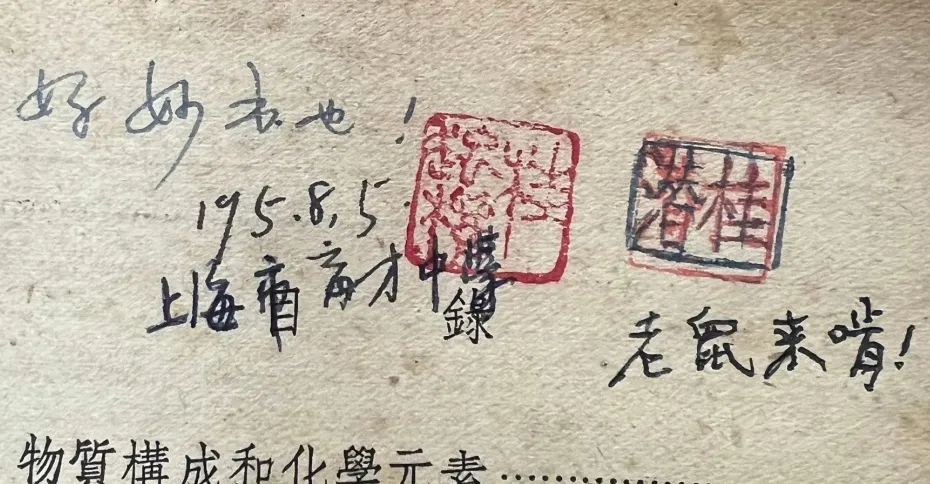 好妙书也!
195.8.5.
上海市育才中學
錄
桂
老鼠来啃!
物質構成和化學元素……………